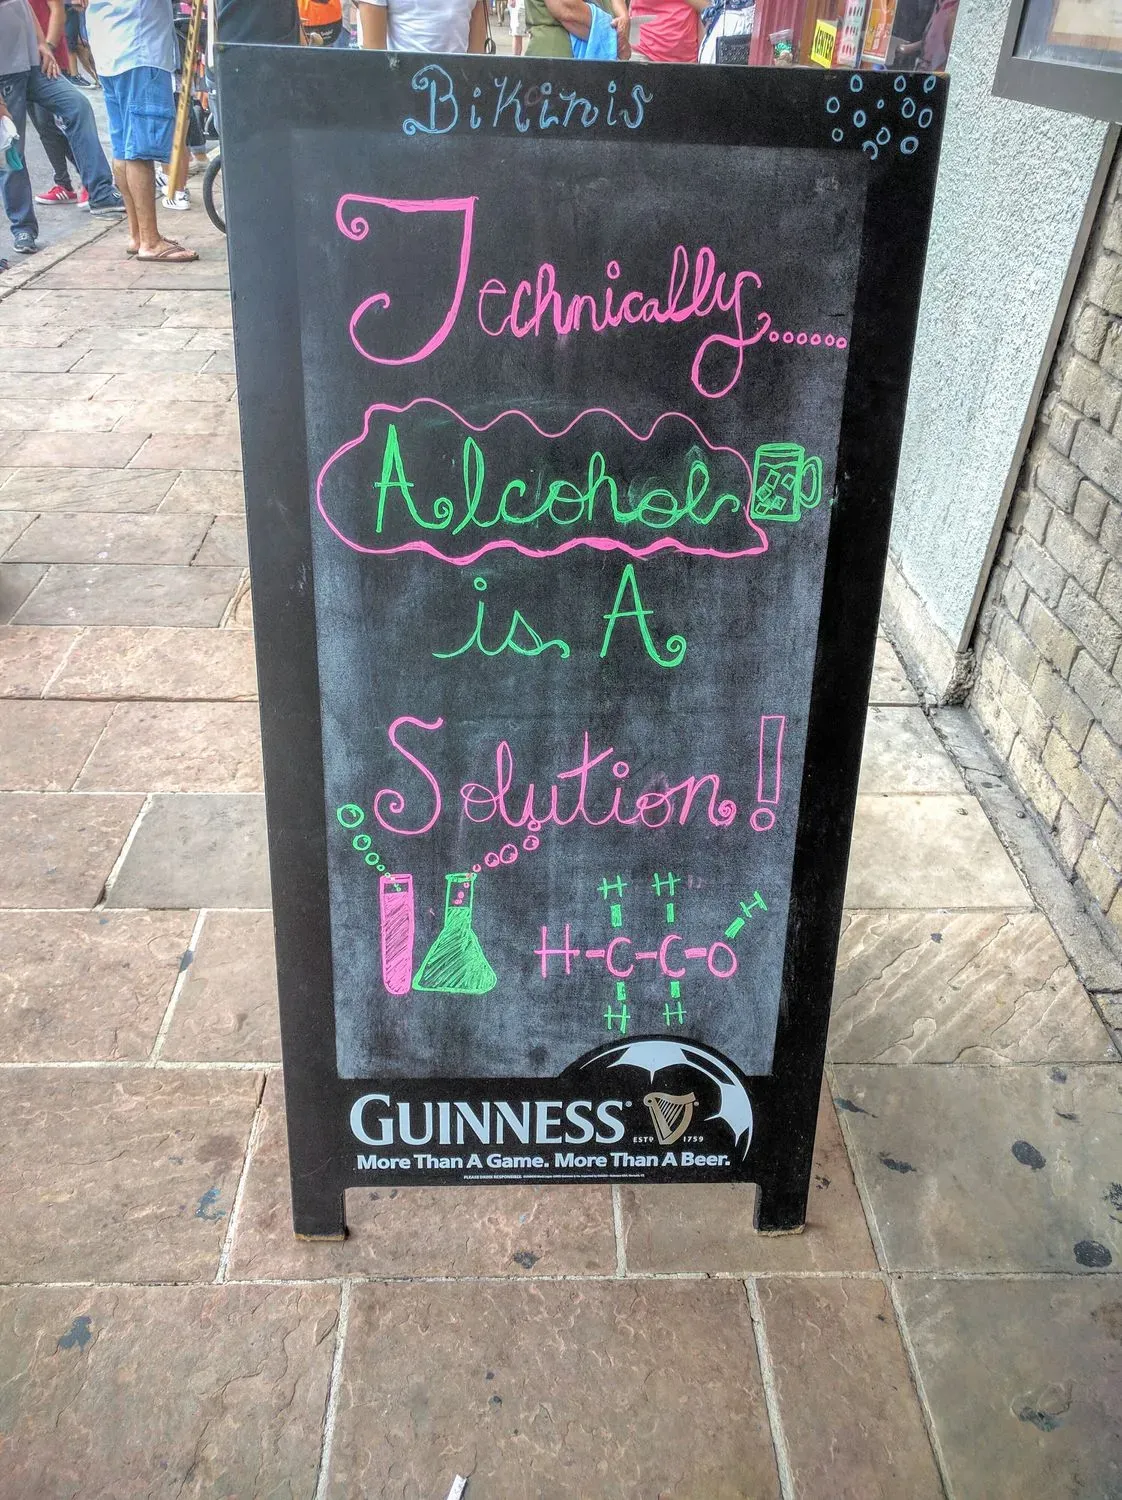 BiKinis
Technically......
Alcohol
is A
Solution!
H H
H-C-C-O H
H H
GUINNESS
ESTD 1759
More Than A Game. More Than A Beer.
PLEASE DRINK RESPONSIBLY.